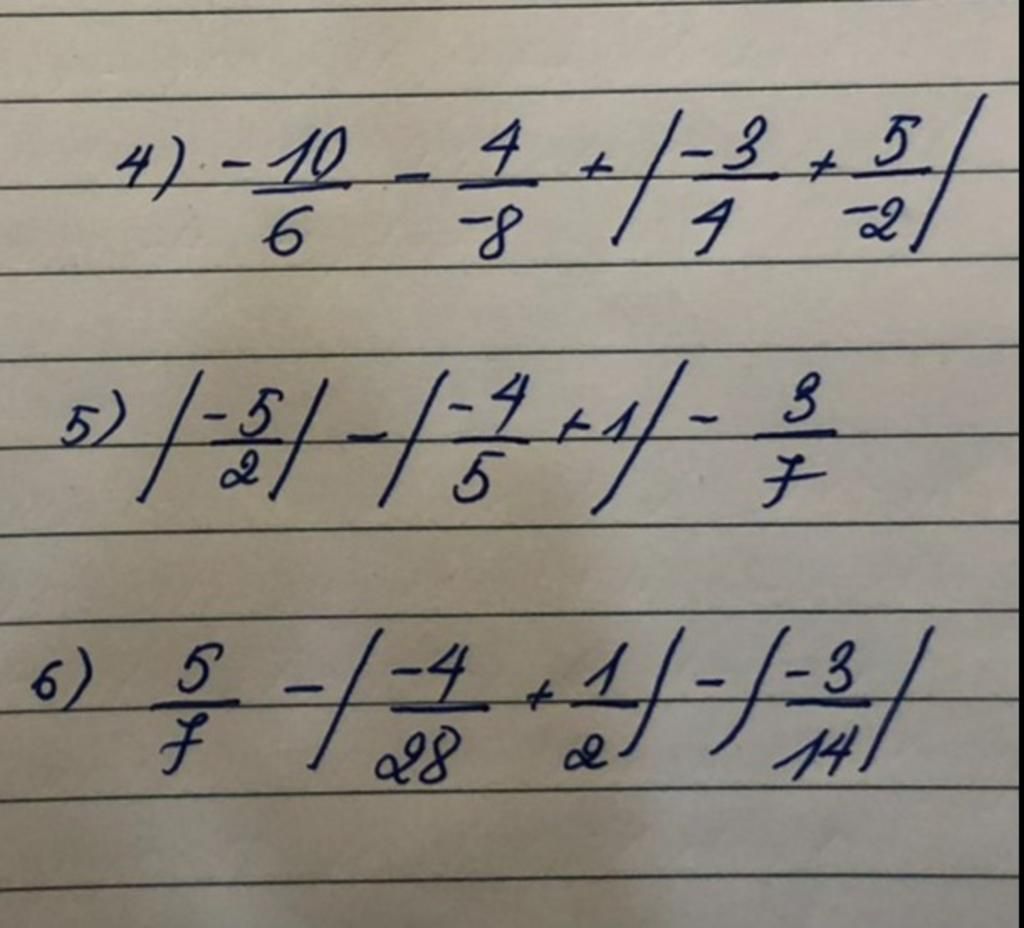 4) -10/6 - 4/-8 + |-3/4 + 5/-2|
5) |-5/2| - |-4/5 + 1| - 3/7
6) 5/7 - |-4/28 + 1/2| - |-3/14|